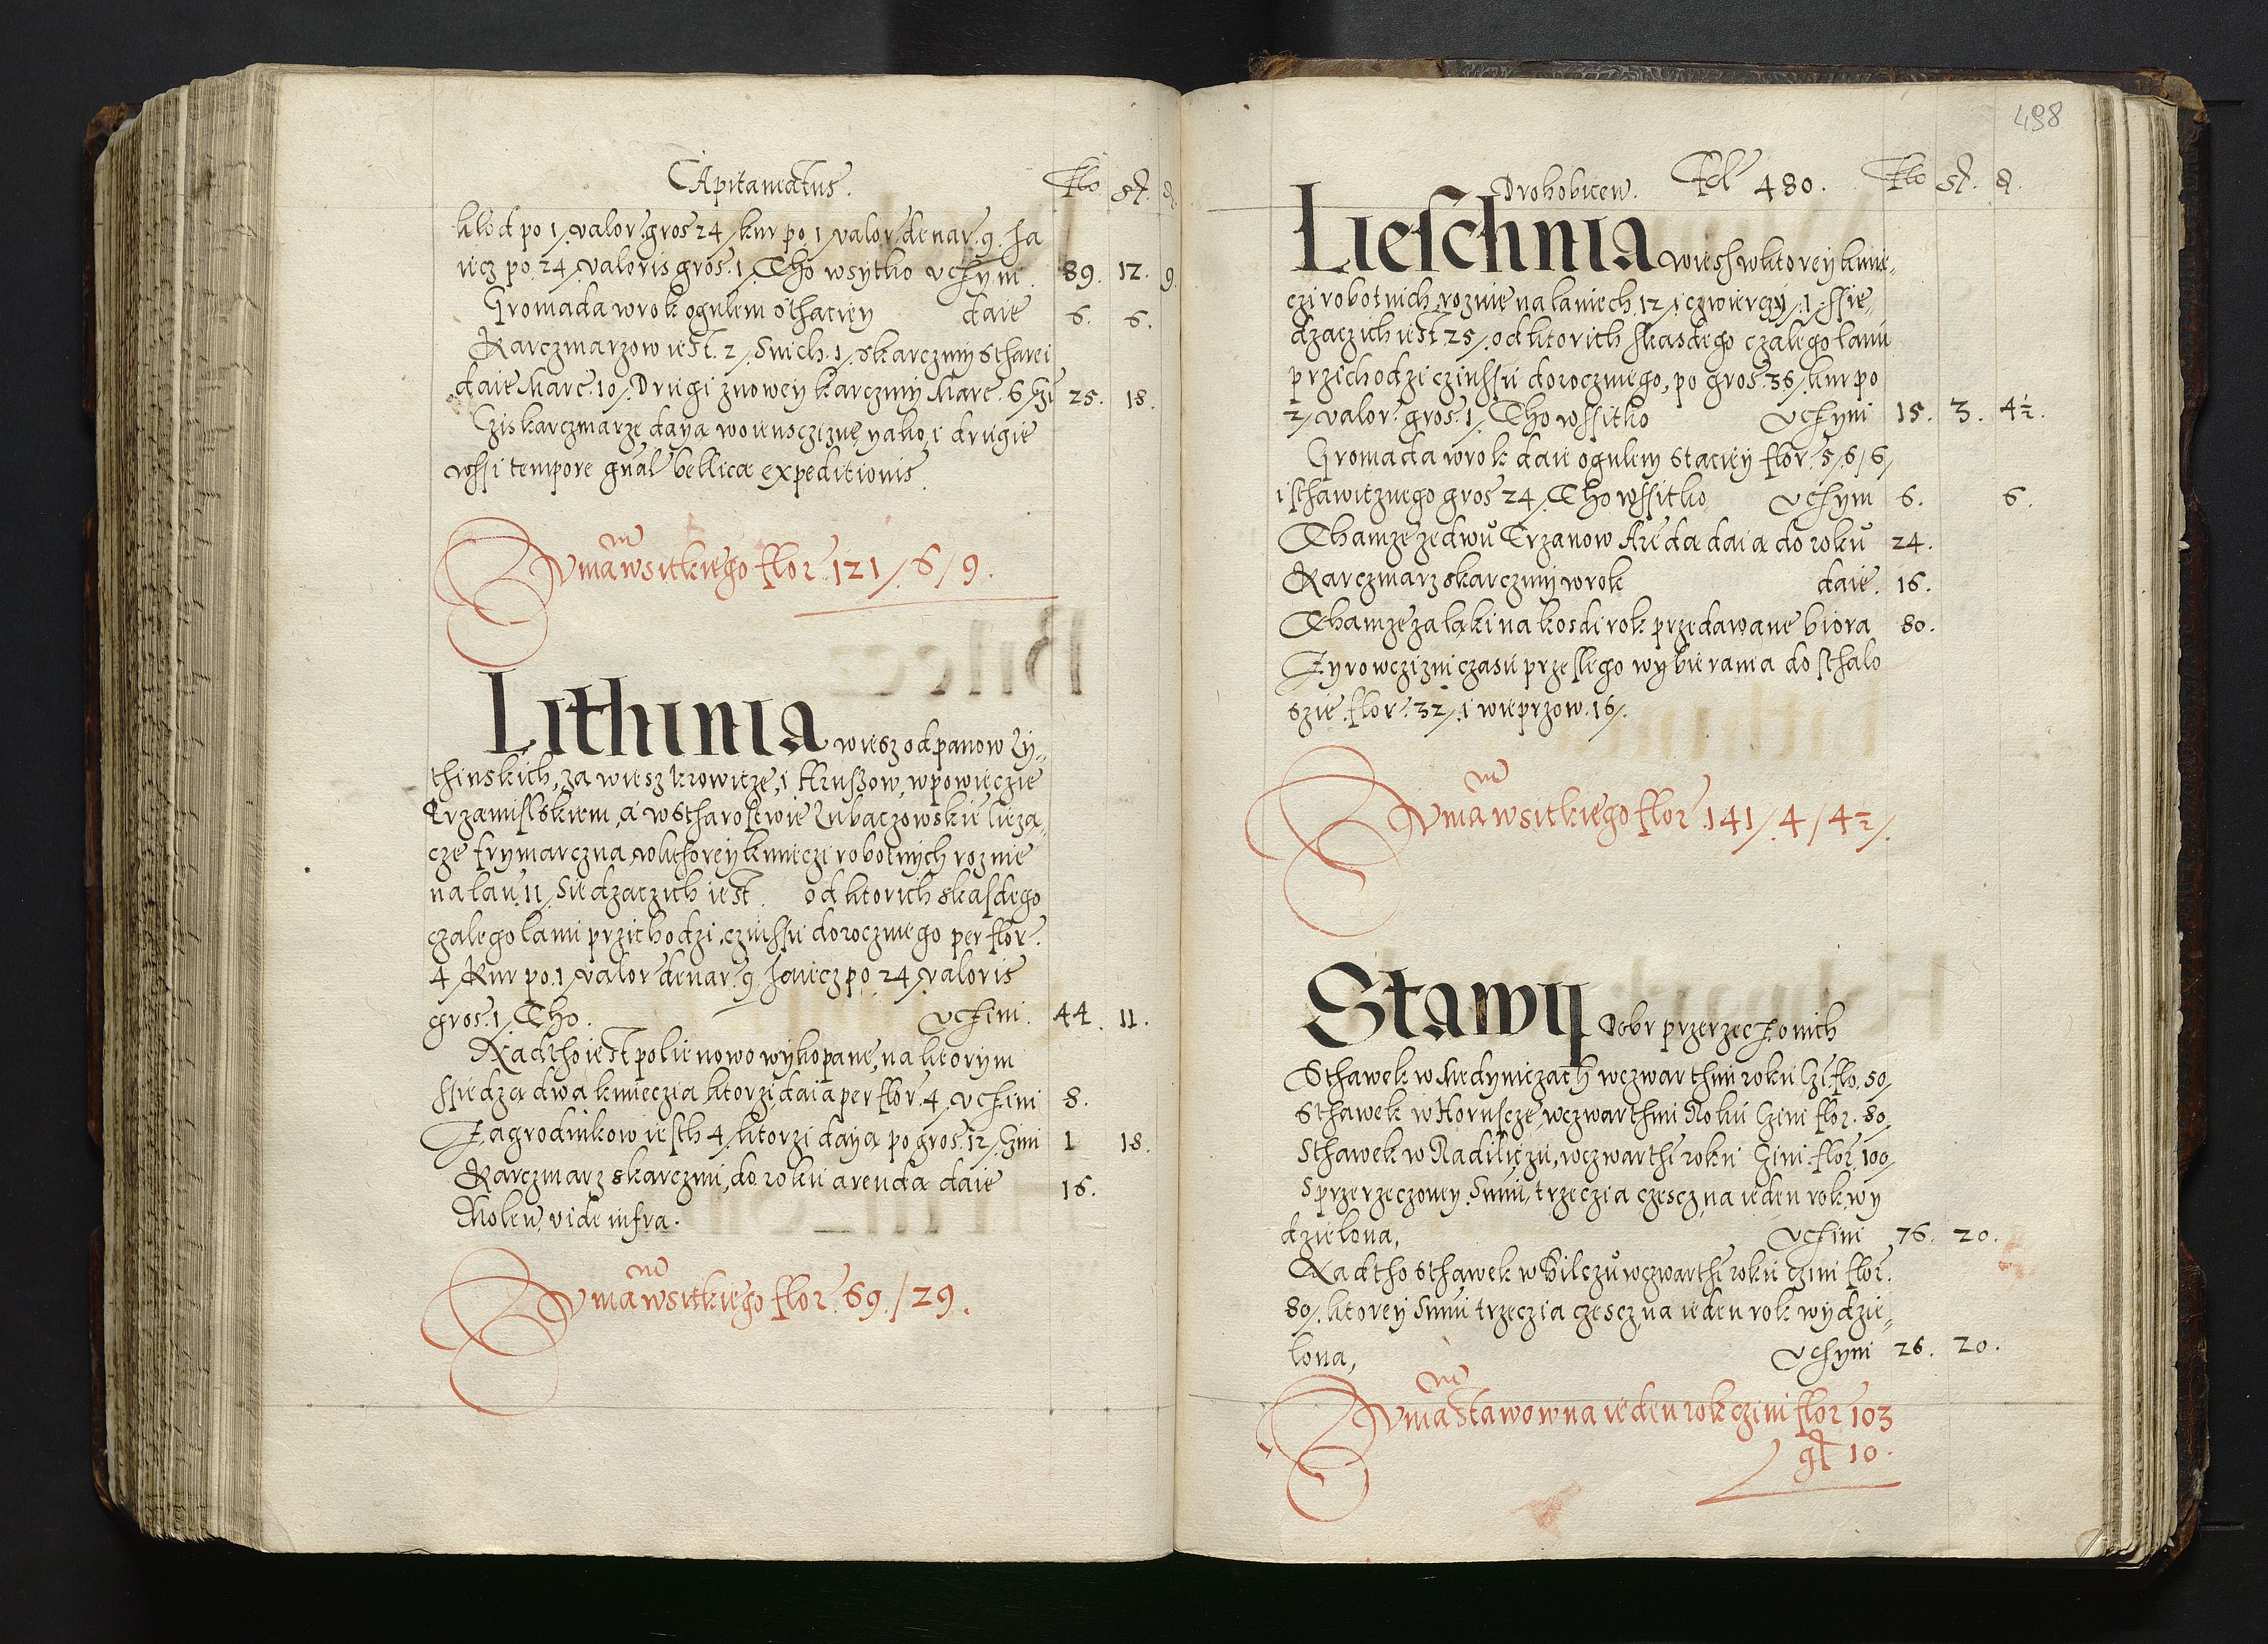 Capitaneatus. Flo. gr. d.
kłod po 1/. valor. gros 24/ kur po. 1/ valor. denar. 9. Ja
iecz po 24/. valoris gros. 1/. Tho wsytko vchyni. 89. 12. 9.
Gromada w rok ogulem sthaciey daie 6. 6.
Karczmarzow iest 2/. s nich. 1/. s karczmy stharei
daie Marc. 10/. Drugi z nowey karczmy Marc. 6/ 25. 18.
Czi s karczmarze daya woiensczizne, yako, i drugie
wssi tempore gnal bellica expeditionis.
Summa wsitkiego flor. 121/. 6/ 9.
Lithinia wiesz od panow Ly„
thinskich, za wiesz Krowicze, i Hrussow, w powieczie
Przamislskiem, a w stharostwie Lubaczowskie lieza„
cze frymarczna, w kthorey kmieczi robotnych roznie
na łan. 11/. siedzaczich iest. od ktorich s kasdego
czalego lanu przichodzi, czinssu dorocznego per flor.
4/ Kur po. 1/ valor denar. 9. Jaiecz po 24/. valoris
gros. 1/. Tho. vchini. 44. 11.
Nad tho iest polie nowo wykopane, na ktorym
ssiedza dwa kmieczia ktorzi daia per flor. 4/ vchini 8.
Zagrodnikow iesth 4/. ktorzi daya po gros. 12/. Czini 1 18.
Karczmarz s karczmi, do roku arenda daie 16.
Molen. vide infra.
Summa wsitkiego flor. 69./ 29.
498
Drohobicen. Fol 480. Flo gr. d.
Lieschnia wiesh w ktorey kmie„
czi robotnich roznie na laniech 12/. i czwierczy/. 1/. ssie„
dzaczich iest 25/. od ktorich s kasdego czalego lanu
przichodzi czinssu dorocznego, po gros. 36/. kur po
2/. valor. gros. 1/. Tho wssitko vchyni 15. 3. 4½.
Gromada w rok daie ogulem staciey flor. 5/. 6/ 6/
i sthawicznego gros 24/. Tho wssitko vchyni 6. 6.
Thamze ze dwu Trzanow Areda daia do roku 24.
Karczmarz s karczmy w rok daie. 16.
Thamze za laki na kosdi rok przedawane biora 80.
Zyrowczizni czasu przeslego wybierania dosthalo
szie flor. 32/. i wieprzow. 16/.
Summa wsitkiego flor. 141/. 4/ 4½/.
Stawy Dobr przerzeczonich
Sthawek w Medyniczach w czwarthim roku Czi. flo. 50/
Sthawek w Horuscze, w czwarthim Roku Czini flor. 80/
Sthawek w Radiliczu, w czwarthi roku Czini flor. 100/
S przerzeczoney Summ, trzeczia czescz, na ieden rok, wy
dzielona, vchini 76. 20.
Nad tho sthawek w Bilczu w czwarthi roku czini flor.
80/. ktorey Summ trzeczia czescz na ieden rok wydzie„
lona, vchyni 26. 20.
Summa Stawow na ieden rok czini flor 103
gr 10.